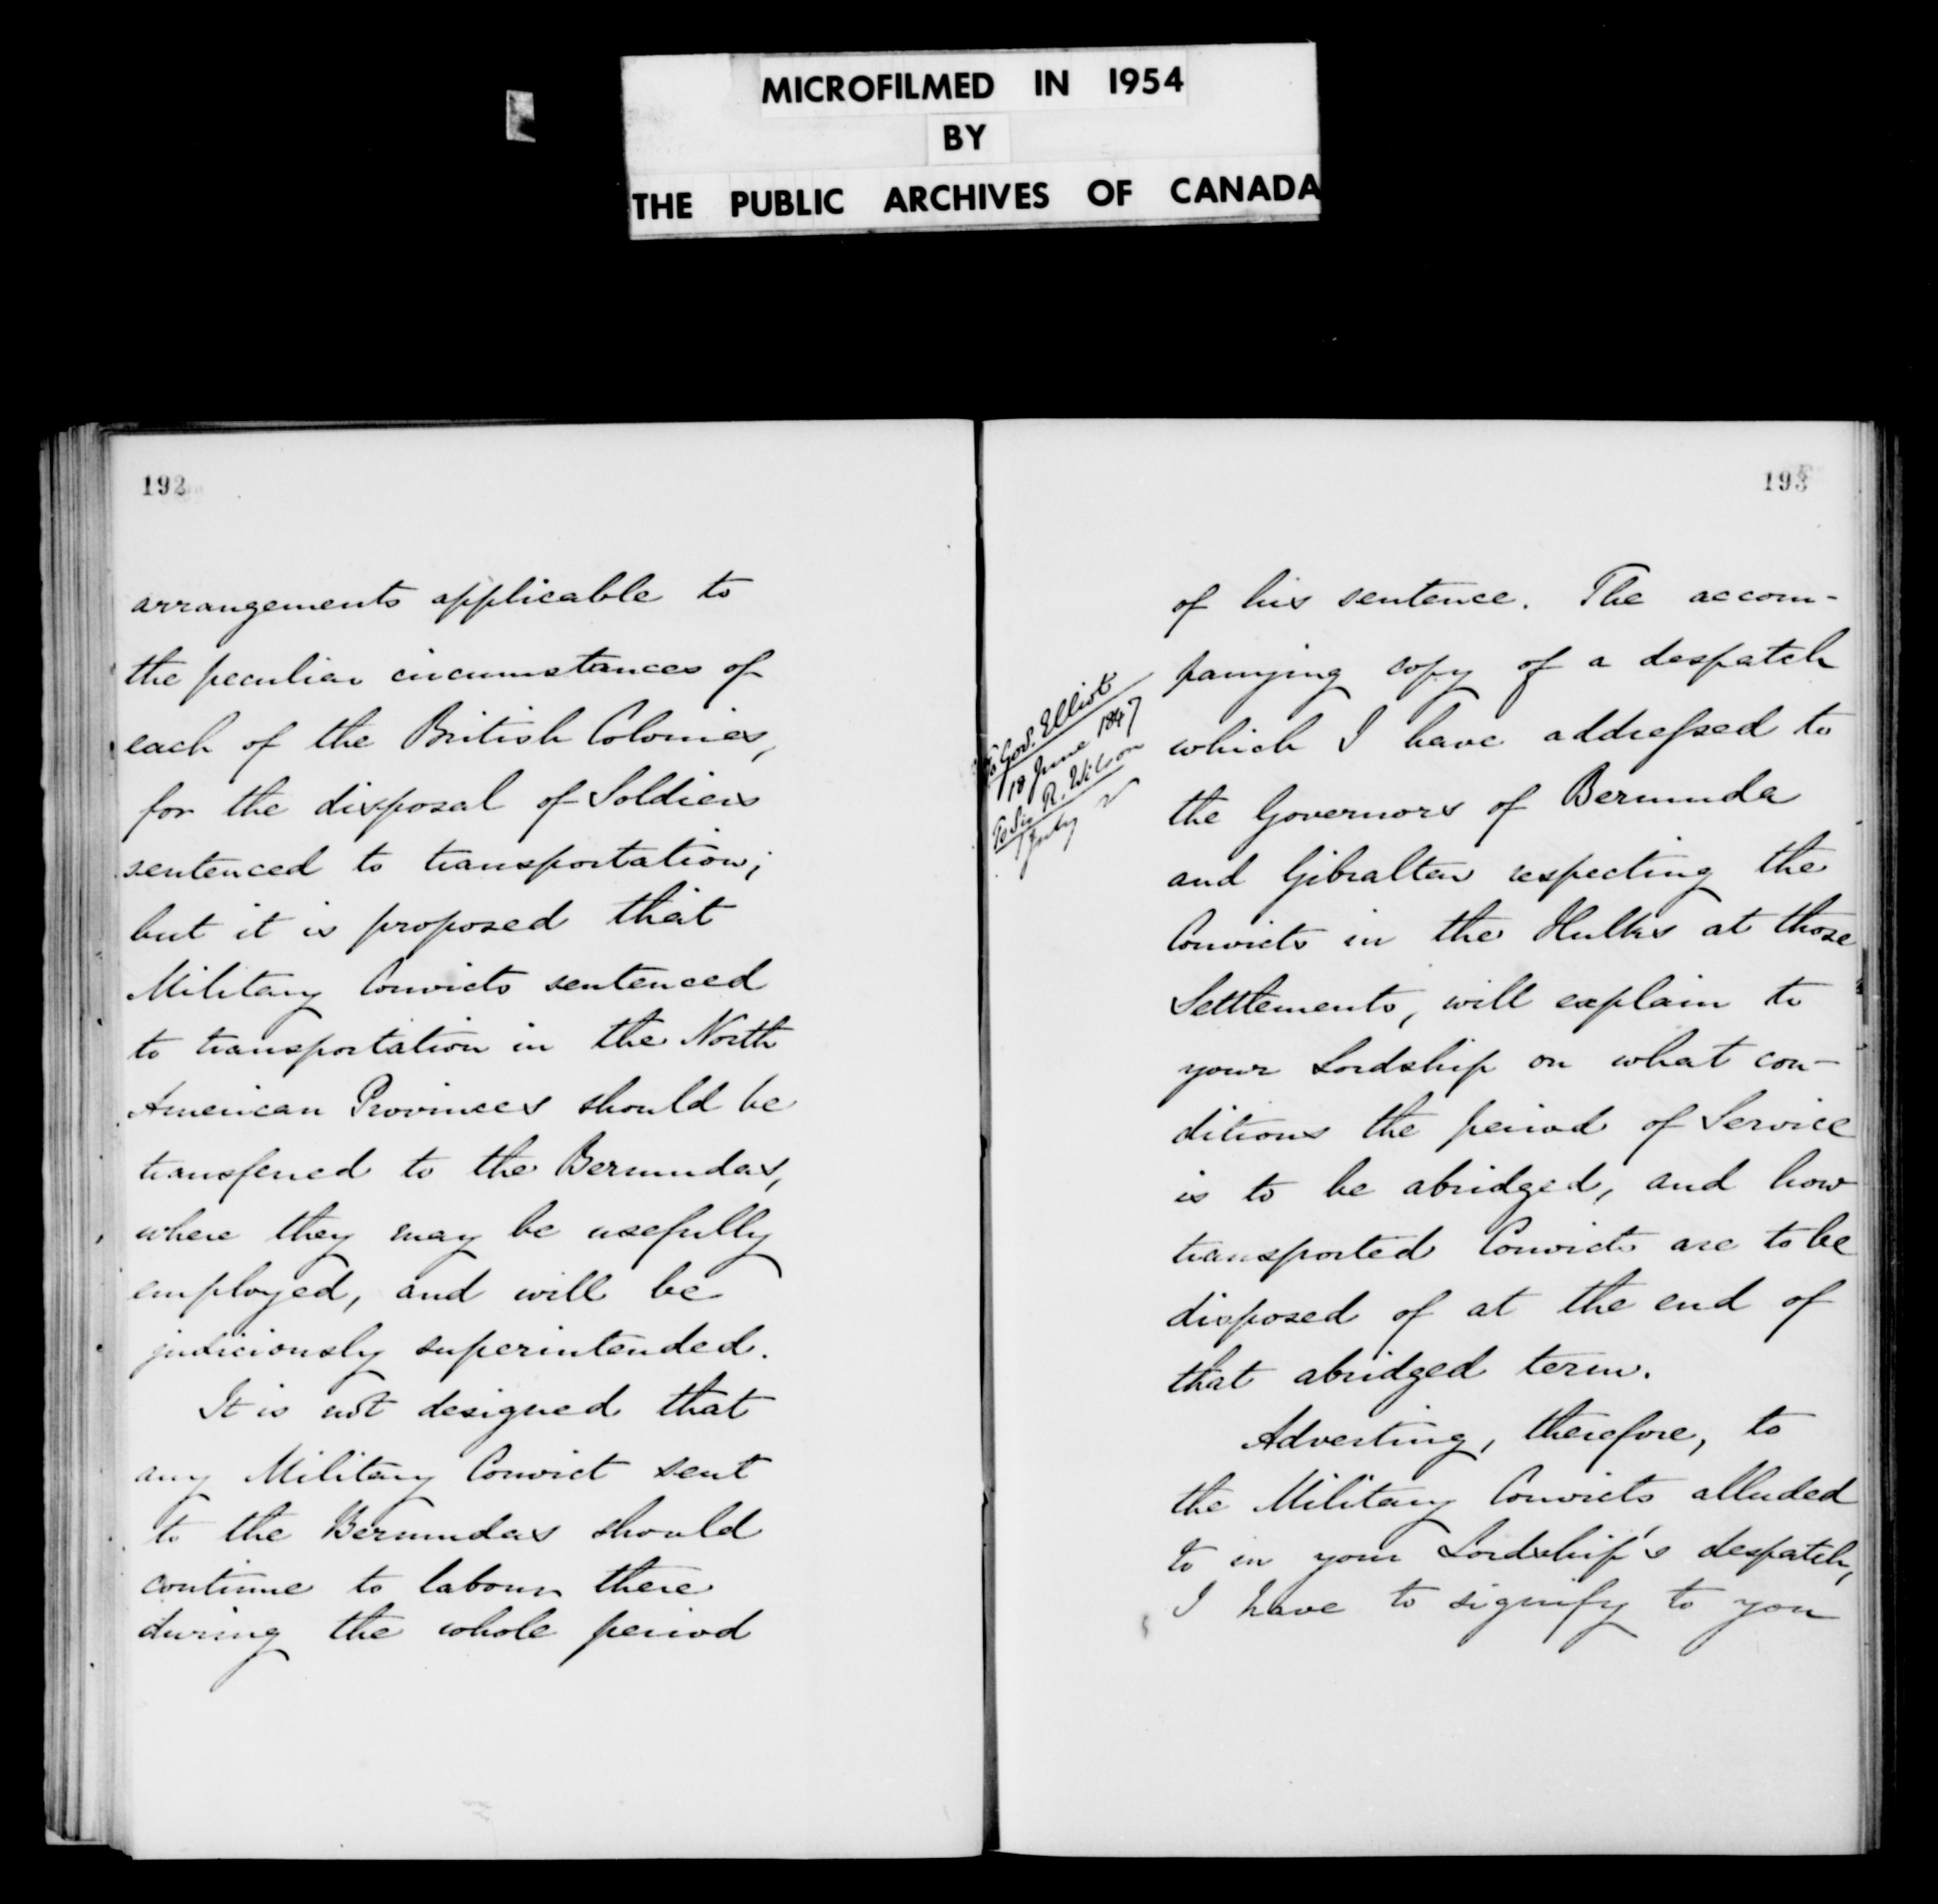 MICROFILMED IN 1954
BY
THE PUBLIC ARCHIVES OF CANADA
192
arrangements applicable to
the peculiar circumstances of
each of the British Colonies,
for the disposal of Soldiers
sentenced to transportation;
but it is proposed that
Military Convicts sentenced
to transportation in the North
American Provinces should be
transferred to the Bermudas,
where they may be usefully
employed, and will be
judiciously superintended.
It is not designed that
any Military Convict sent
to the Bermudas should
continue to labour there
during the whole period
193
of his sentence. The accom-
panying copy of a despatch
which I have addressed to
the Governors of Bermuda
and Gibraltar respecting the
Convicts in the Hulks at those
Settlements, will explain to
your Lordship on what con-
ditions the period of Service
is to be abridged, and how
transported Convicts are to be
disposed of at the end of
that abridged term.
Adverting, therefore, to
the Military Convicts alluded
to in your Lordship's despatch,
I have to signify to you
To Gov. Elliot
18 June 1847
To Sir R. Wilson
July